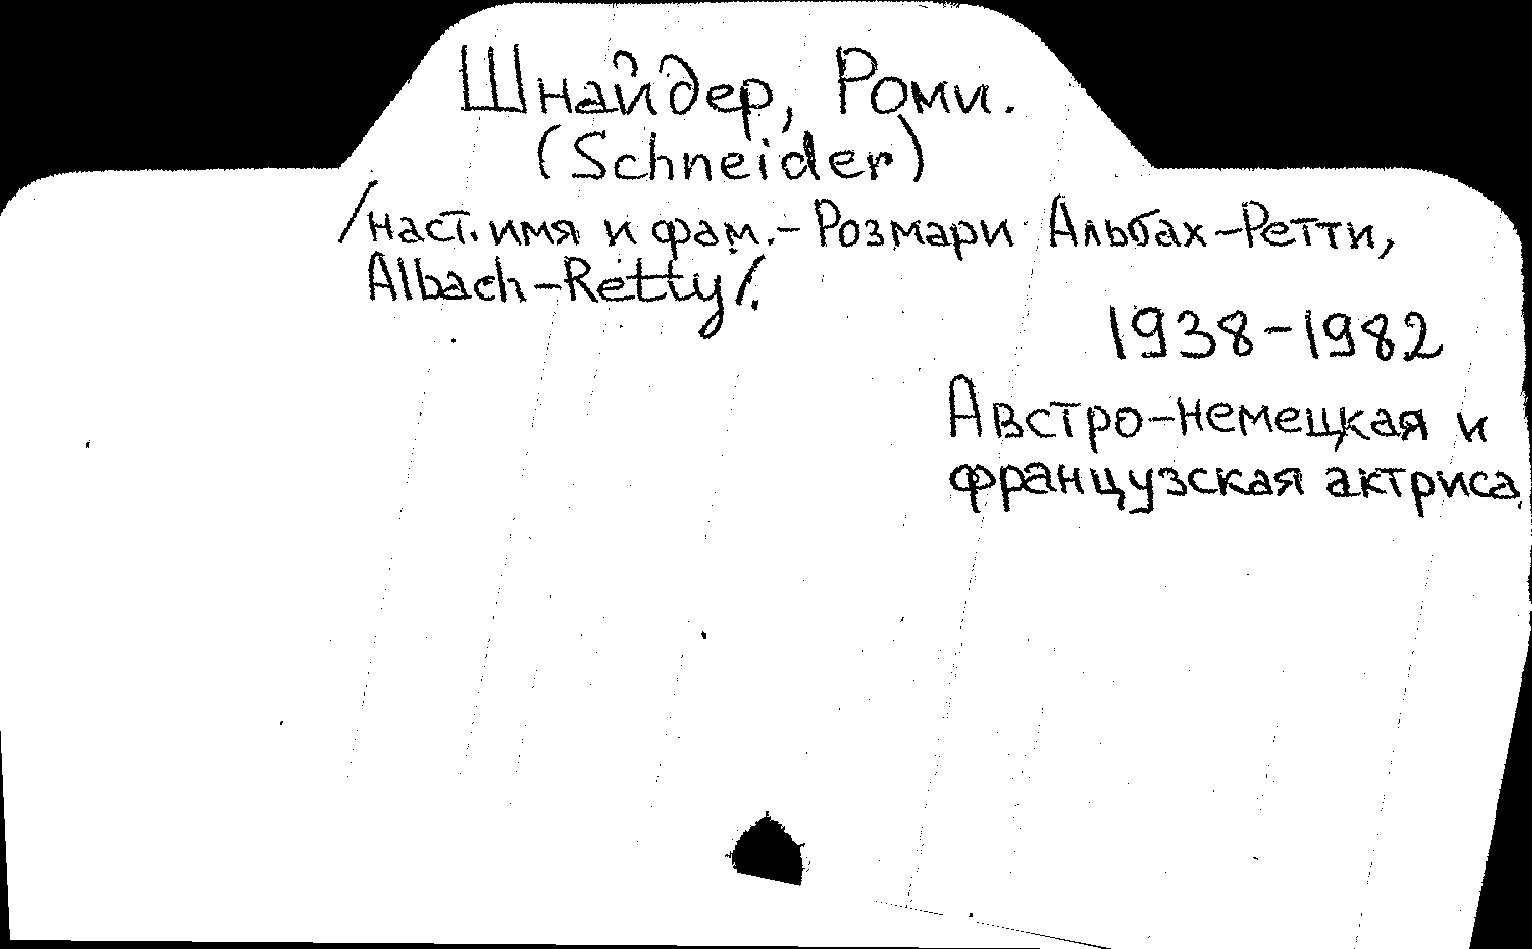 Шнайдер, Роми.
(Schneider)
/наст. имя и фам. - Розмари Альбах-Ретти,
Albach-Retty/.
1938-1982
Австро-немецкая и
французская актриса.